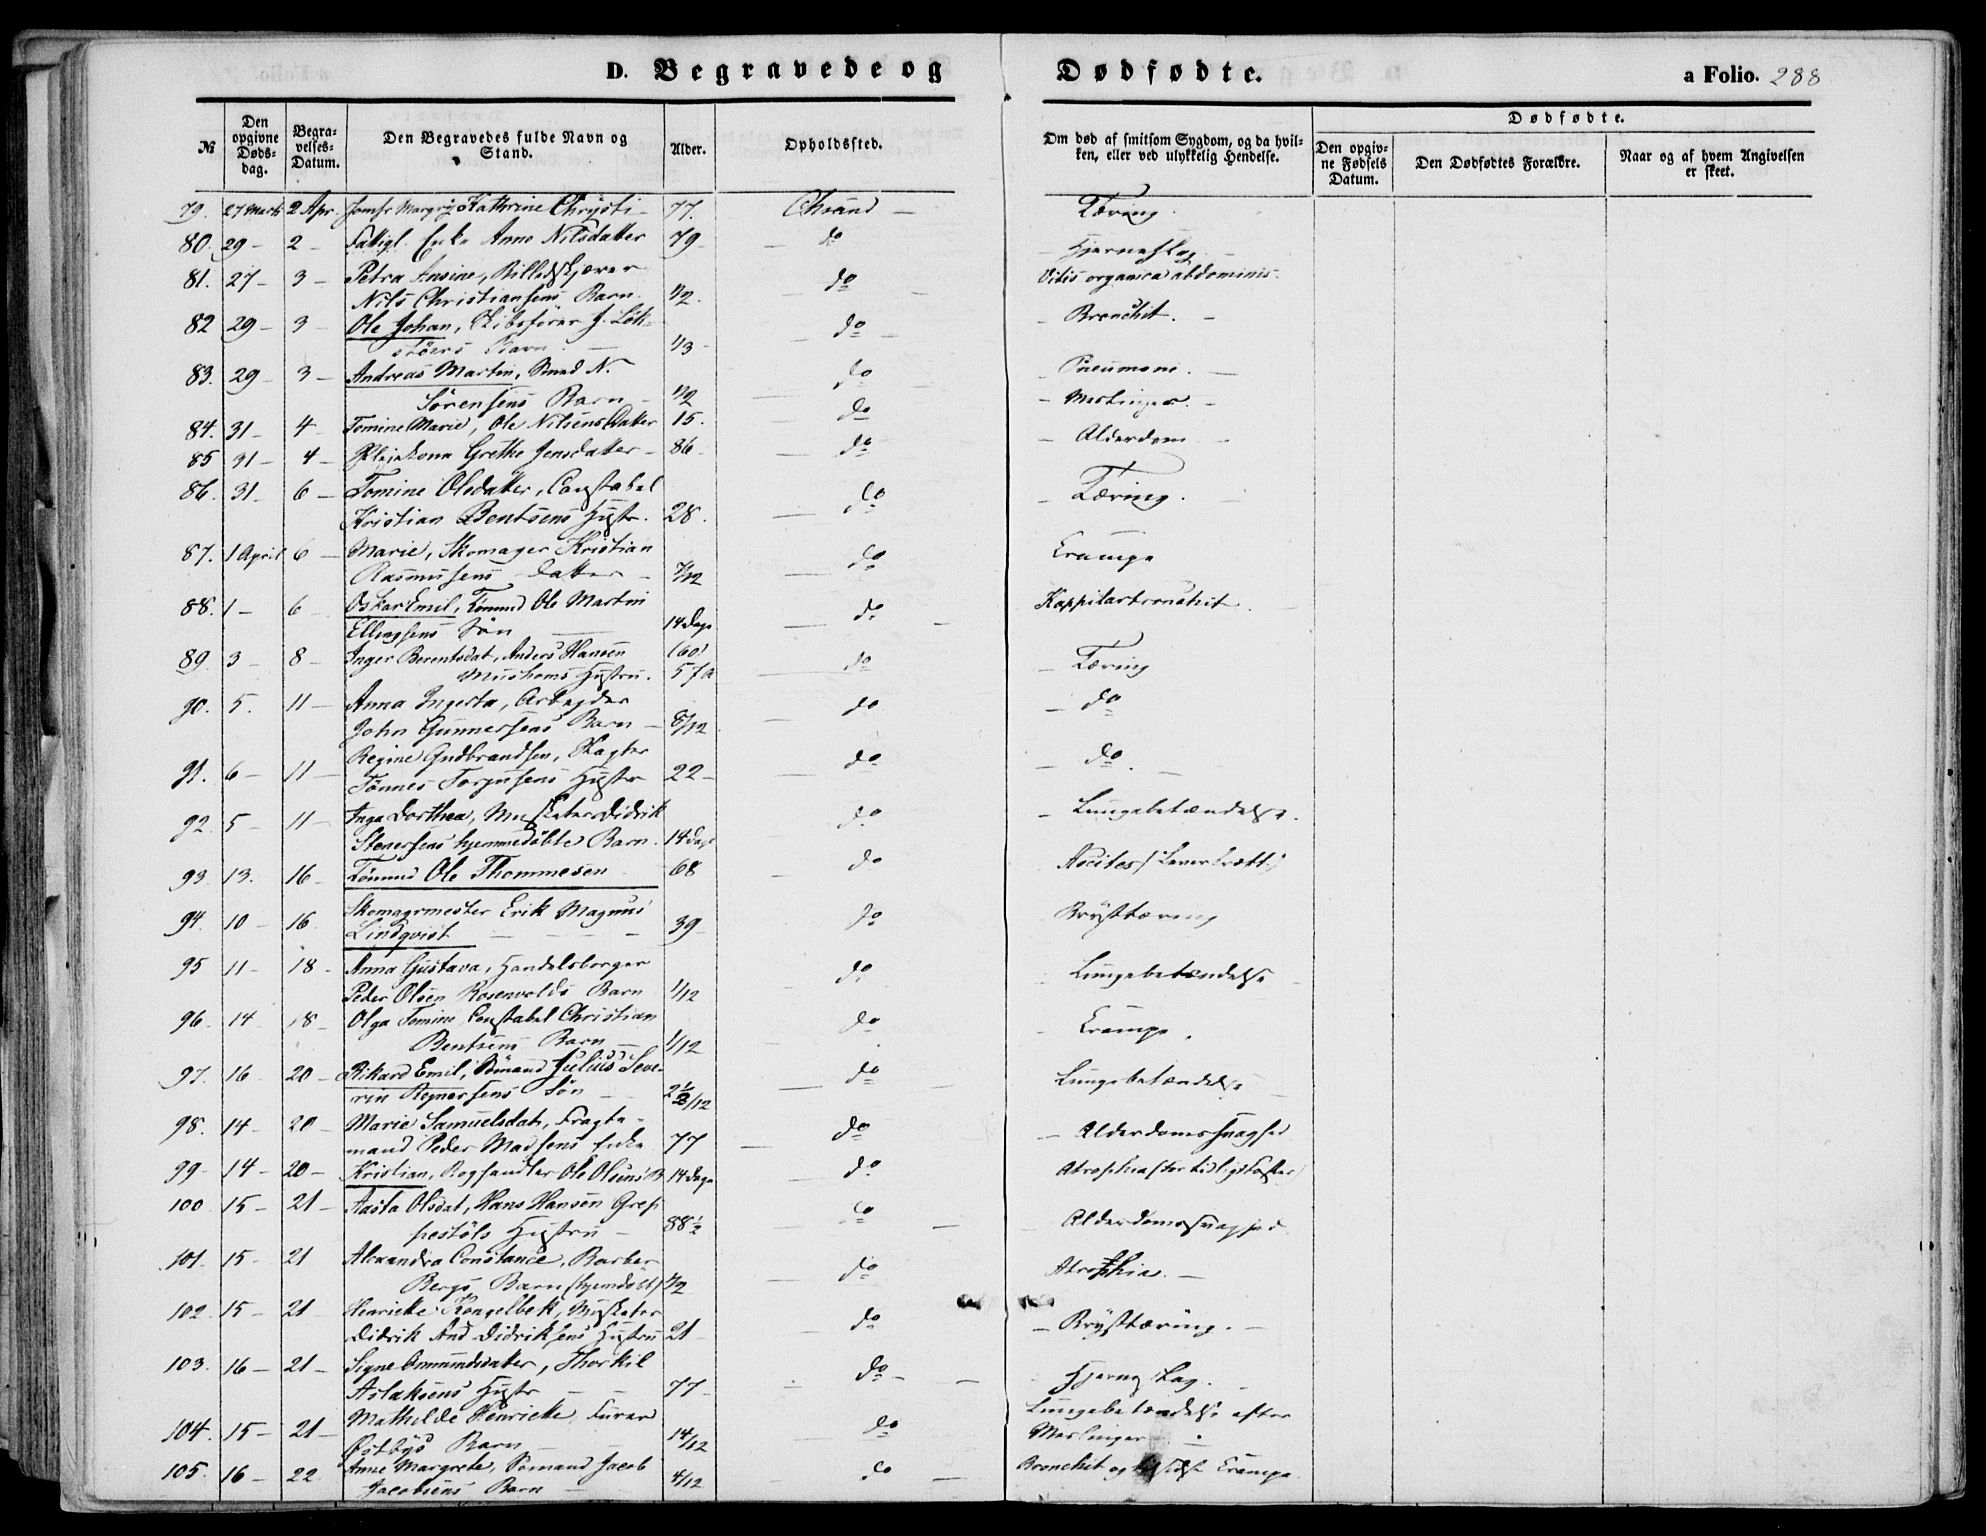 D. Begravede og Dødfødte. a Folio. 288
№ Den opgivne Døds-dag. Begra-velses-Datum. Den Begravedes fulde Navn og Stand. Alder. Opholdssted. Om død af smitsom Sygdom, og da hvil-ken, eller ved ulykkelig Hendelse. Dødfødte. Den opgiv-ne Fødsels Datum. Den Dødfødtes Forældre. Naar og af hvem Angivelsen er skeet.
79. 27 Marts 2 Apr. Jomfr Kathrine Chrysti - 77. Chsand - Tæring.
80. 29 - 2 - Fattigl. Enke Anne Nilsdatter 79 - do - Hjerneslag -
81. 27 - 3 - Petra Ansine, Billedskjærer do Vitis organica abdominis.
Nils Christiansens Barn. 1/2.
82 29 - 3 - Ole Johan, Skibsfører J. Løk- do - Bronchit. -
støers Barn. 1/3 -
83. 29 - 3 - Andreas Martin, Smed N. do - Pneumoni. -
Sørensens Barn - 1/2 - Meslinger. -
84. 31 - 4 - Tomine Marie, Ole Nilsens Datter 15. do
85 31 - 4 - Grethe Jensdatter - 86 - do - Alderdom -
86. 31 - 6 - Tomine Olsdatter, Constabel do - Tæring. -
Kristian Bentsens Hustr. 28.
87. 1 April 6 - Marie, Skomager Kristian do Crampe
Rasmussens Datter - 7/12
88. 1 - 6 - Oskar Emil, Tømmd Ole Martin do Kappilarbronchit.
Ellingsens Søn 14 Dage
89. 3 - 8 - Inger Berentsdat, Anders Hansen (60) do - Tæring
Hustru. 57 a
90. 5. 11 - Anna Ingerta, Arbejder do - do
John Gunnersens Barn - 8/12
91. 6 - 11 - Regine Gudbrandsen, Slagter do - do. -
Tønnes Torjussens Hustr 22 -
92. 5 - 11 - Inga Dorthea, Musketer Didrik do - Lungebetændelse.
Stenersens hjemmedøbte Barn. 14 Dage
93. 13. 16 - Tømmd Ole Thommesen 68 do Ascites
94. 10 - 16 Skomagrmester Erik Magnus do Brysttæring
Lindqvist - 39 -
95 11 - 18 - Anna Gustava, Handelsborger do - Lungebetændelse
Peder Olsen Rosenvolds Barn 1/12
96. 14 18 - Olga Tomine, Constabel Christian do - Crampe.
Bentsens Barn - 1/12
97. 16 20 - Rikard Emil, Sømand Julius Seve- do Lungebetændelse
rin Regnersens Søn 2 1/2/12
98. 14 - 20 - Marie Samuelsdat, Fragte- do - Alderdomssvaghed
mand Peder Madsens Enke 77 -
99 - 14 - 20 - Kristian, Ole Olsens B 14 Dage do Atrophia
100 15 - 21 - Aasta Olsdat, Hans Hansen Grep do - Alderdomssvaghed
pestøls Hustru - 88 1/2
101. 15 - 21 Alexandra Constance, Barber do Atrophia. -
Bergs Barn (hjemdøbt) 1/2
102. 15 - 21 Henriette Kongelbek, Musketer do - Brysttæring. -
Didrik And Didriksens Hustru 21 -
103. 16 - 21 - Signe Amundsdatter, Thorkil do - - Hjerneslag.
Aslaksens Hustr - 77 -
104. 15 - 21 - Mathilde Henriette, Furer do Lungebetændelse efter
Østbys Barn - 14/12 Meslinger
105. 16 - 22 Anne Margrete, Sømand Jacob do - Bronchit og Crampe
Jacobsens Barn - 4/12